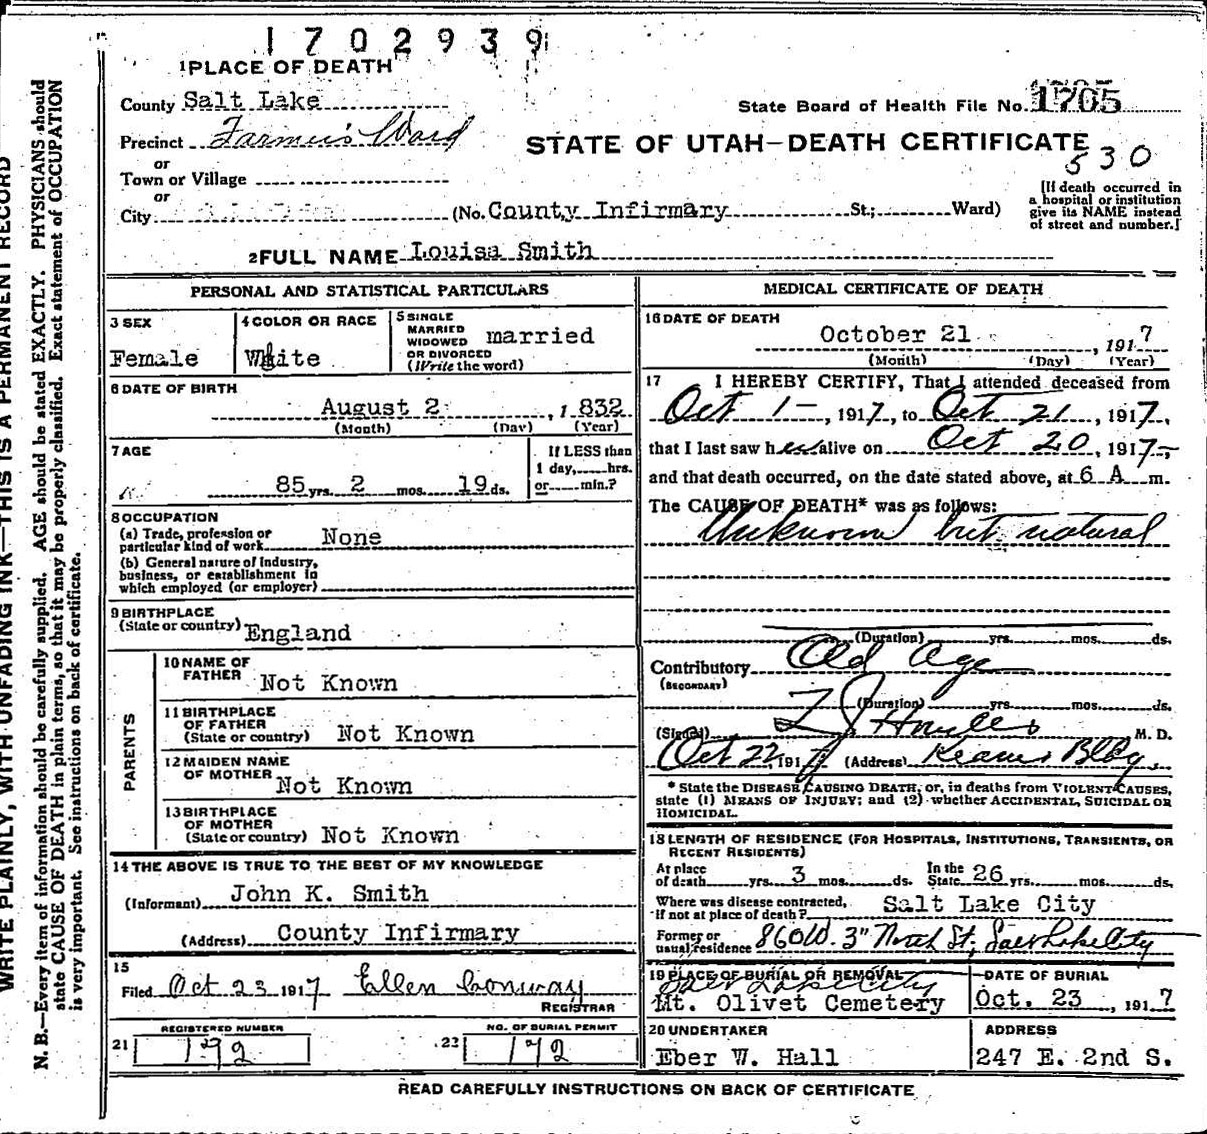 1702939
1 PLACE OF DEATH
County Salt Lake
State Board of Health File No. 1705
Precinct Farmer's Ward
STATE OF UTAH—DEATH CERTIFICATE
530
or
Town or Village
or
City (No. County Infirmary St.; Ward)
[If death occurred in
a hospital or institution
give its NAME instead
of street and number.]
2 FULL NAME Louisa Smith
PERSONAL AND STATISTICAL PARTICULARS
3 SEX
Female
4 COLOR OR RACE
White
5 SINGLE
MARRIED
WIDOWED
OR DIVORCED
(Write the word)
married
6 DATE OF BIRTH
August 2, 1832
(Month) (Day) (Year)
7 AGE
85 yrs. 2 mos. 19 ds.
If LESS than
1 day, hrs.
or min.?
8 OCCUPATION
(a) Trade, profession or
particular kind of work None
(b) General nature of Industry,
business, or establishment in
which employed (or employer)
9 BIRTHPLACE
(State or country) England
PARENTS
10 NAME OF
FATHER Not Known
11 BIRTHPLACE
OF FATHER
(State or country) Not Known
12 MAIDEN NAME
OF MOTHER Not Known
13 BIRTHPLACE
OF MOTHER
(State or country) Not Known
14 THE ABOVE IS TRUE TO THE BEST OF MY KNOWLEDGE
(Informant) John K. Smith
(Address) County Infirmary
15
Filed Oct 23 1917 Ellen Conway
REGISTRAR
REGISTERED NUMBER
21 192
NO. OF BURIAL PERMIT
22 192
MEDICAL CERTIFICATE OF DEATH
16 DATE OF DEATH
October 21, 1917
(Month) (Day) (Year)
17 I HEREBY CERTIFY, That I attended deceased from
Oct 1-, 1917, to Oct 21, 1917,
that I last saw her alive on Oct 20, 1917,
and that death occurred, on the date stated above, at 6 A m.
The CAUSE OF DEATH* was as follows:
Unknown but natural
(Duration) yrs. mos. ds.
Contributory Old age
(SECONDARY)
(Duration) yrs. mos. ds.
(Signed) M. D.
Oct 22, 1917 (Address) Kearns Bldg.
* State the DISEASE CAUSING DEATH, or, in deaths from VIOLENT CAUSES,
state (1) MEANS OF INJURY; and (2) whether ACCIDENTAL, SUICIDAL OR
HOMICIDAL.
18 LENGTH OF RESIDENCE (FOR HOSPITALS, INSTITUTIONS, TRANSIENTS, OR
RECENT RESIDENTS)
At place
of death yrs. 3 mos. ds.
In the
State 26 yrs. mos. ds.
Where was disease contracted,
if not at place of death? Salt Lake City
Former or
usual residence 860 W. 3" North St, Salt Lake City
19 PLACE OF BURIAL OR REMOVAL
Salt Lake City
Mt. Olivet Cemetery
DATE OF BURIAL
Oct. 23, 1917
20 UNDERTAKER
Eber W. Hall
ADDRESS
247 E. 2nd S.
READ CAREFULLY INSTRUCTIONS ON BACK OF CERTIFICATE
WRITE PLAINLY, WITH UNFADING INK—THIS IS A PERMANENT RECORD
N. B.—Every item of information should be carefully supplied. AGE should be stated EXACTLY. PHYSICIANS should
state CAUSE OF DEATH in plain terms, so that it may be properly classified. Exact statement of OCCUPATION
is very important. See instructions on back of certificate.